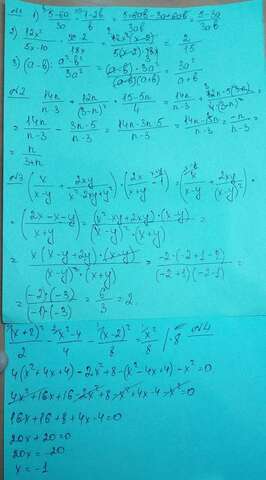 №1 1) 5-6a/3a + 1-2b/b = 5b-6ab+3a-6ab/3ab
2) 12x²/5x-10 · x-2/18x = 12x²(x-2)/5(x-2)·18x = 2/15
3) (a-b) : a²-b²/3a² = (a-b)·3a²/(a-b)(a+b) = 3a²/a+b
№2 14n/n-3 + 12n/(3-n)² · 15-5n/4
= 14n/n-3 - 3n·5/n-3 = 14n-3n·5/n-3 = 14n-15n/n-3 = -n/n-3 =
= n/3-n
№3 (x/x-y + 2xy/x²-2xy+y²) · (2x/x+y - 1) = (x/x-y + 2xy/(x-y)²) ·
· (2x-x-y/x+y) = (x²-xy+2xy)·(x-y)/(x-y)²·(x+y) =
= x(x-y+2y)·(x-y)/(x-y)²·(x+y) = -2·(-2+1·2)/(-2+1)(-2-1) =
= (-2)·(-3)/(-1)·(-3) = 6/3 = 2.
(x+2)²/2 - x²-4/4 - (x-2)²/8 = x²/8 /·8 №4
4(x²+4x+4)-2x²+8-(x²-4x+4)-x²=0
4x²+16x+16-2x²+8-x²+4x-4-x²=0
16x+16+8+4x-4=0
20x+20=0
20x=-20
x=-1